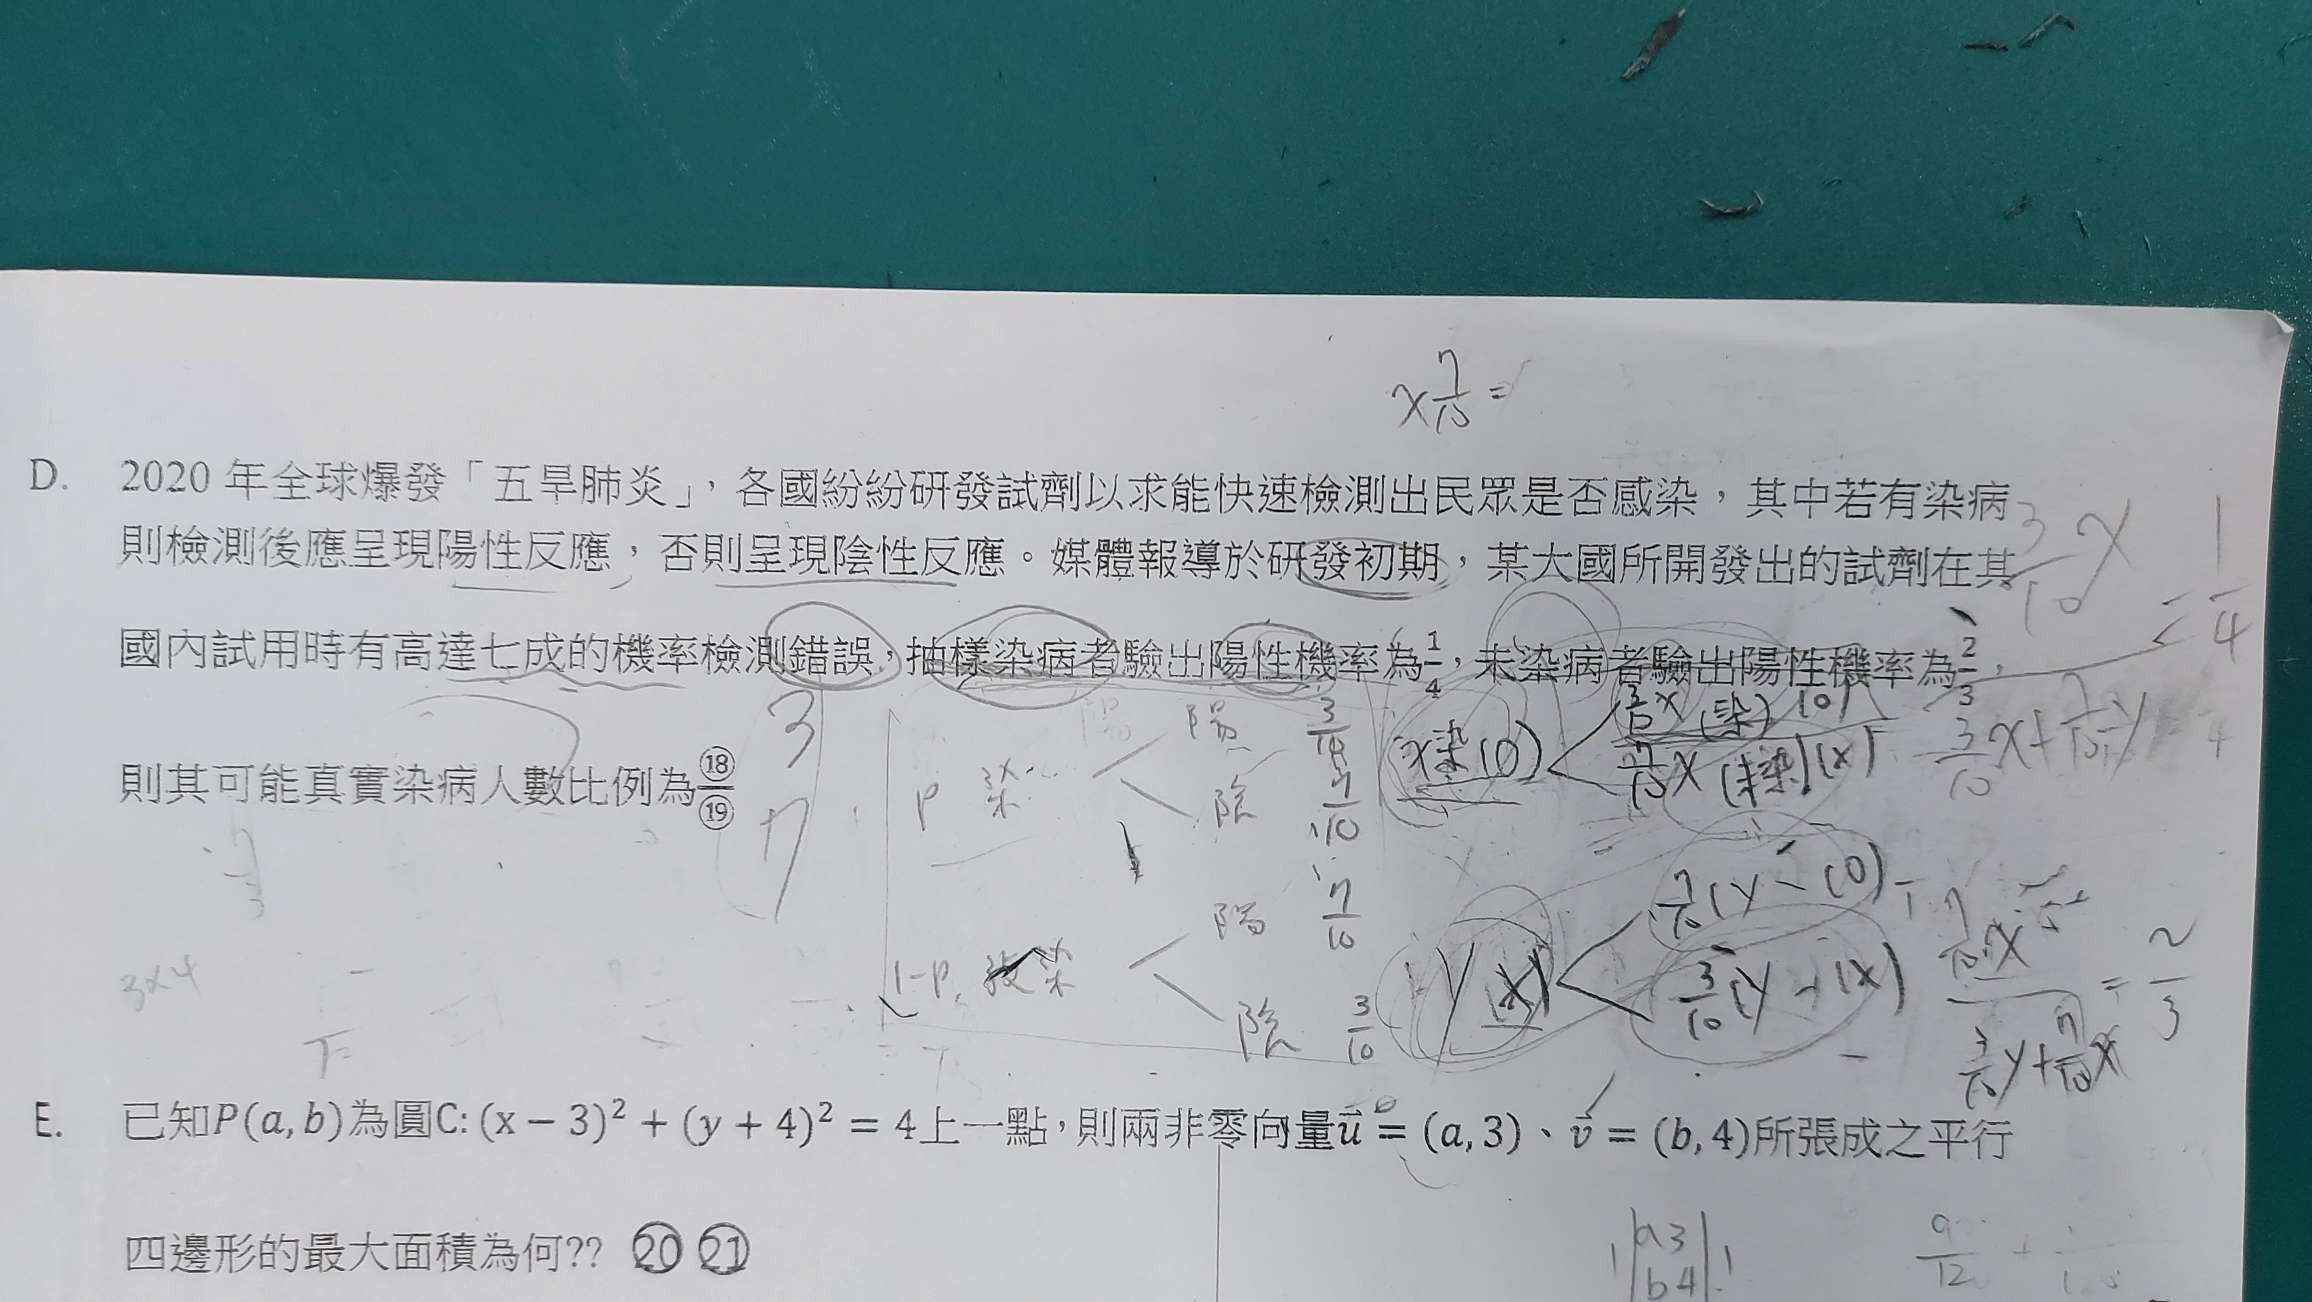 x 7/10 =
D. 2020 年全球爆發「五旱肺炎」，各國紛紛研發試劑以求能快速檢測出民眾是否感染，其中若有染病
則檢測後應呈現陽性反應，否則呈現陰性反應。媒體報導於研發初期，某大國所開發出的試劑在其
3/10 x = 1/4
國內試用時有高達七成的機率檢測錯誤，抽樣染病者驗出陽性機率為1/4，未染病者驗出陽性機率為2/3，
則其可能真實染病人數比例為⑱/⑲
3
7
p 染
陽 3/10
陰 7/10
1-p 沒染
陽 7/10
陰 3/10
x染(0)
3/10 x (染) (0)
7/10 x (未染) (x)
3/10 x + 7/10 y
y (x)
7/10 (y - (0)
3/10 (y - (x)
7/10 x / 3/10 y + 7/10 x = 2/3
3x4
E. 已知P(a, b)為圓C: (x − 3)² + (y + 4)² = 4上一點，則兩非零向量u⃗ = (a, 3)、v⃗ = (b, 4)所張成之平行
四邊形的最大面積為何?? ⑳ ㉑
|a 3|
|b 4|
9/12 +